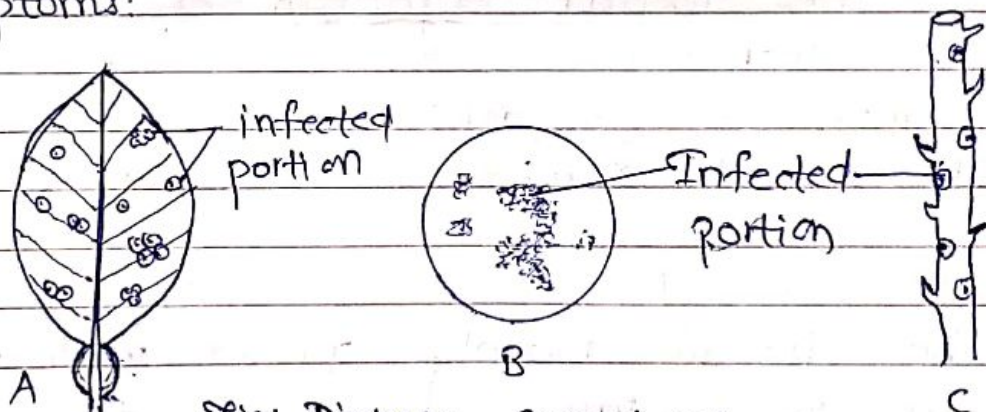 infected
portion
Infected
portion
A
B
C